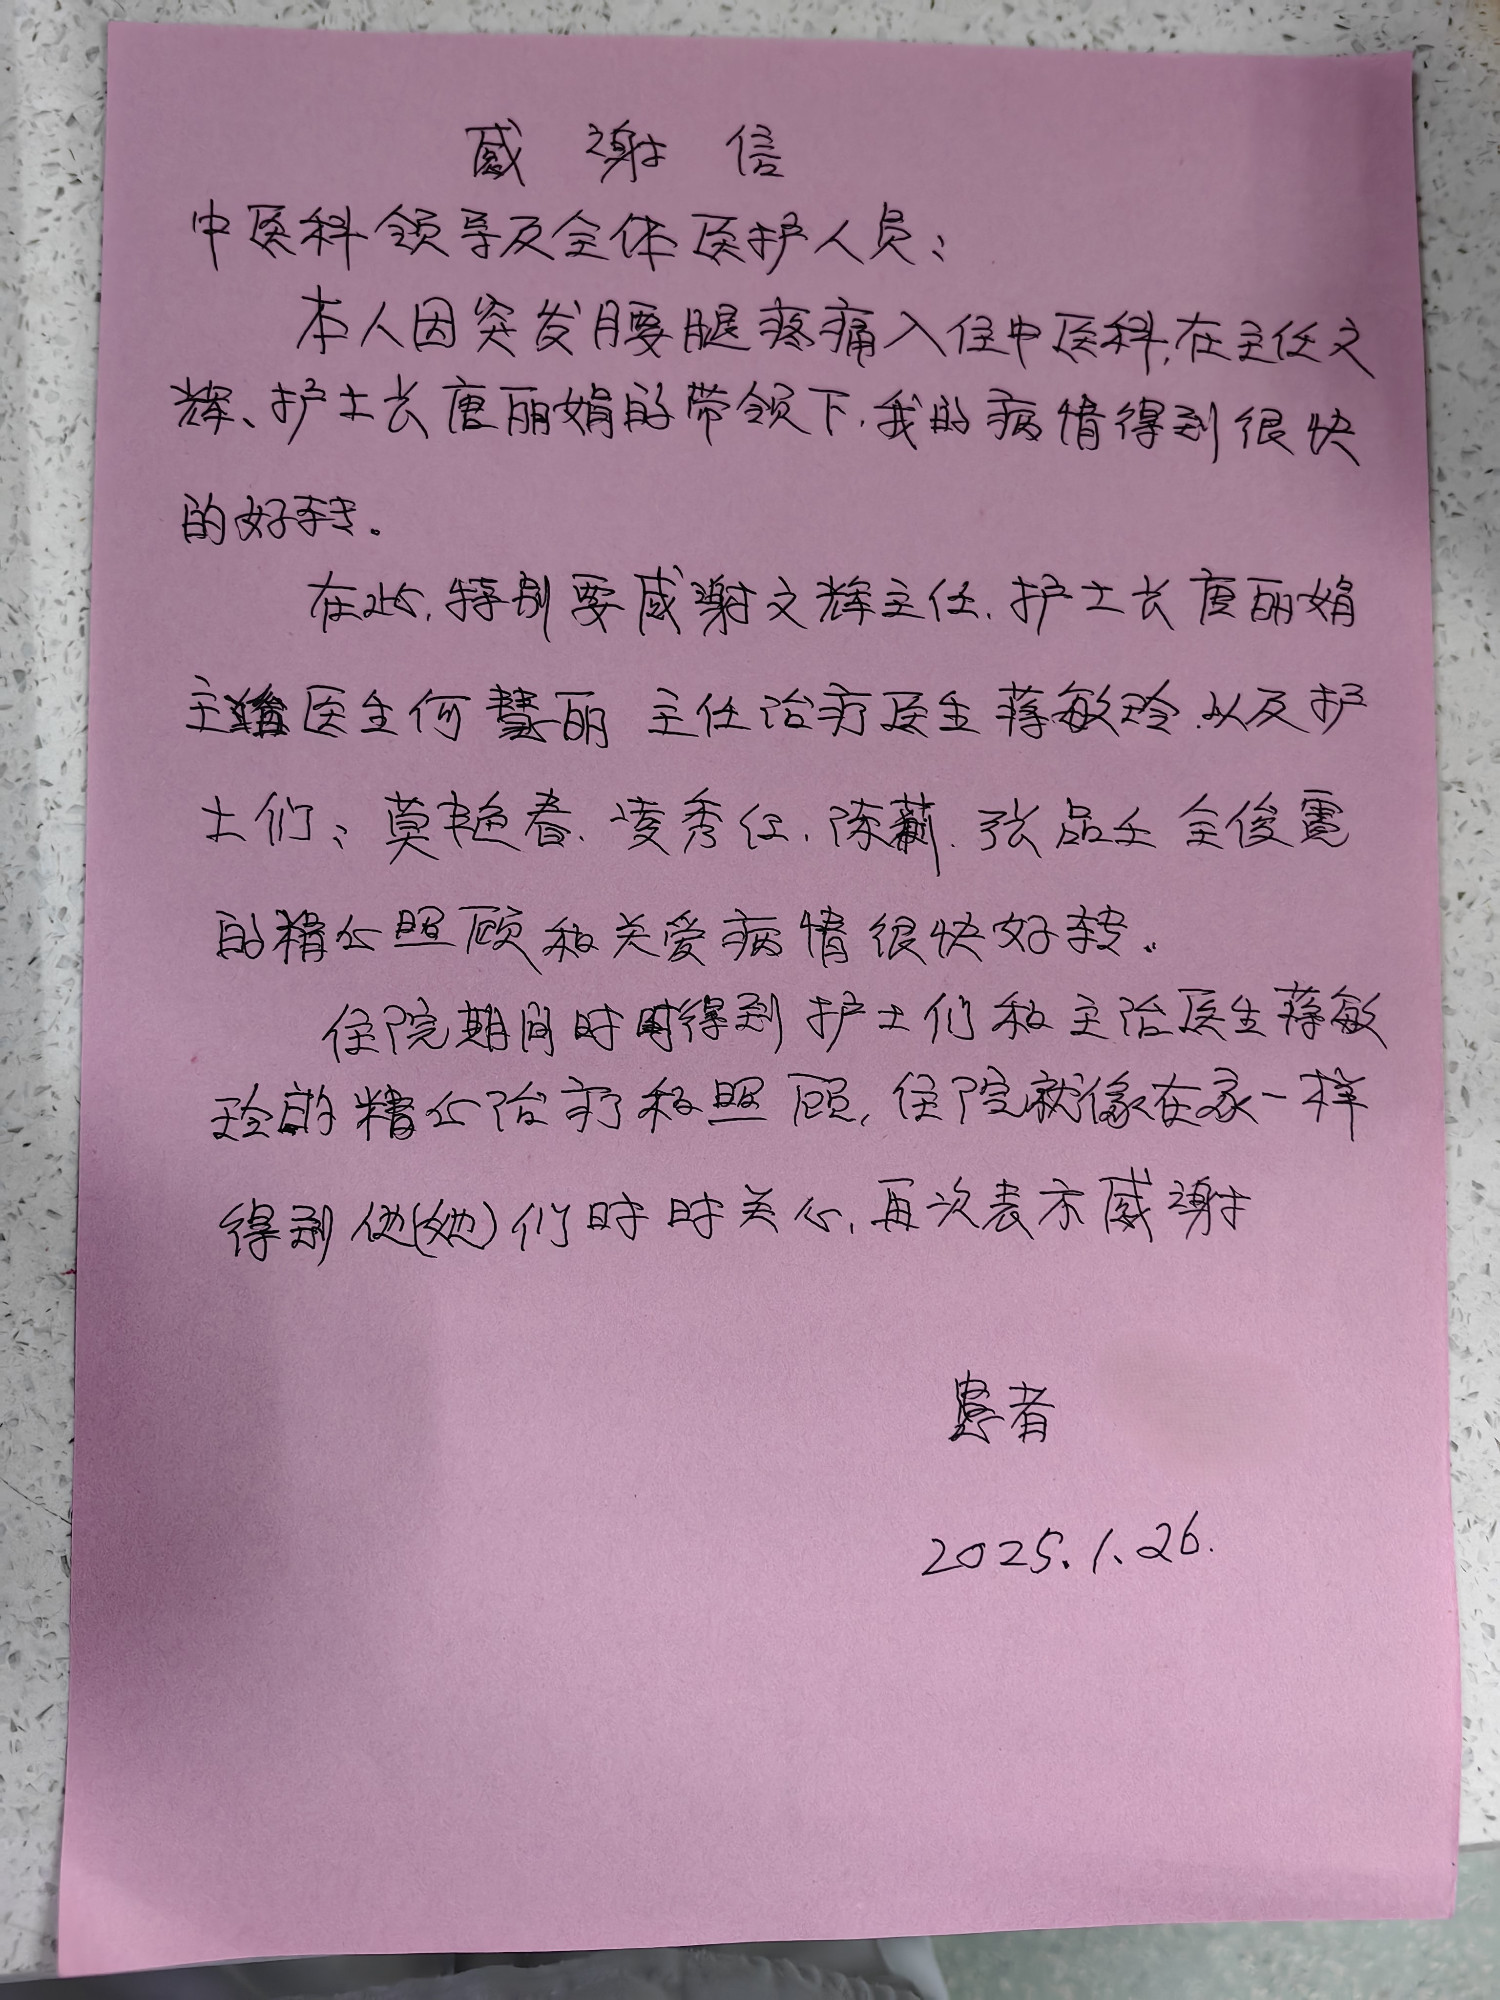 感谢信
中医科领导及全体医护人员：
本人因突发腰腿疼痛入住中医科，在主任文
辉、护士长唐丽娟的带领下，我的病情得到很快
的好转。
在此，特别要感谢文辉主任、护士长唐丽娟
主管医生何慧丽 主任治疗医生蒋敏玲、以及护
士们：莫艳春、凌秀红、陈 、张品壬 全俊霓
的精心照顾和关爱病情很快好转。
住院期间时时得到护士们和主治医生蒋敏
玲的精心治疗和照顾，住院就像在家一样
得到他(她)们时时关心，再次表示感谢
患者
2025.1.26.